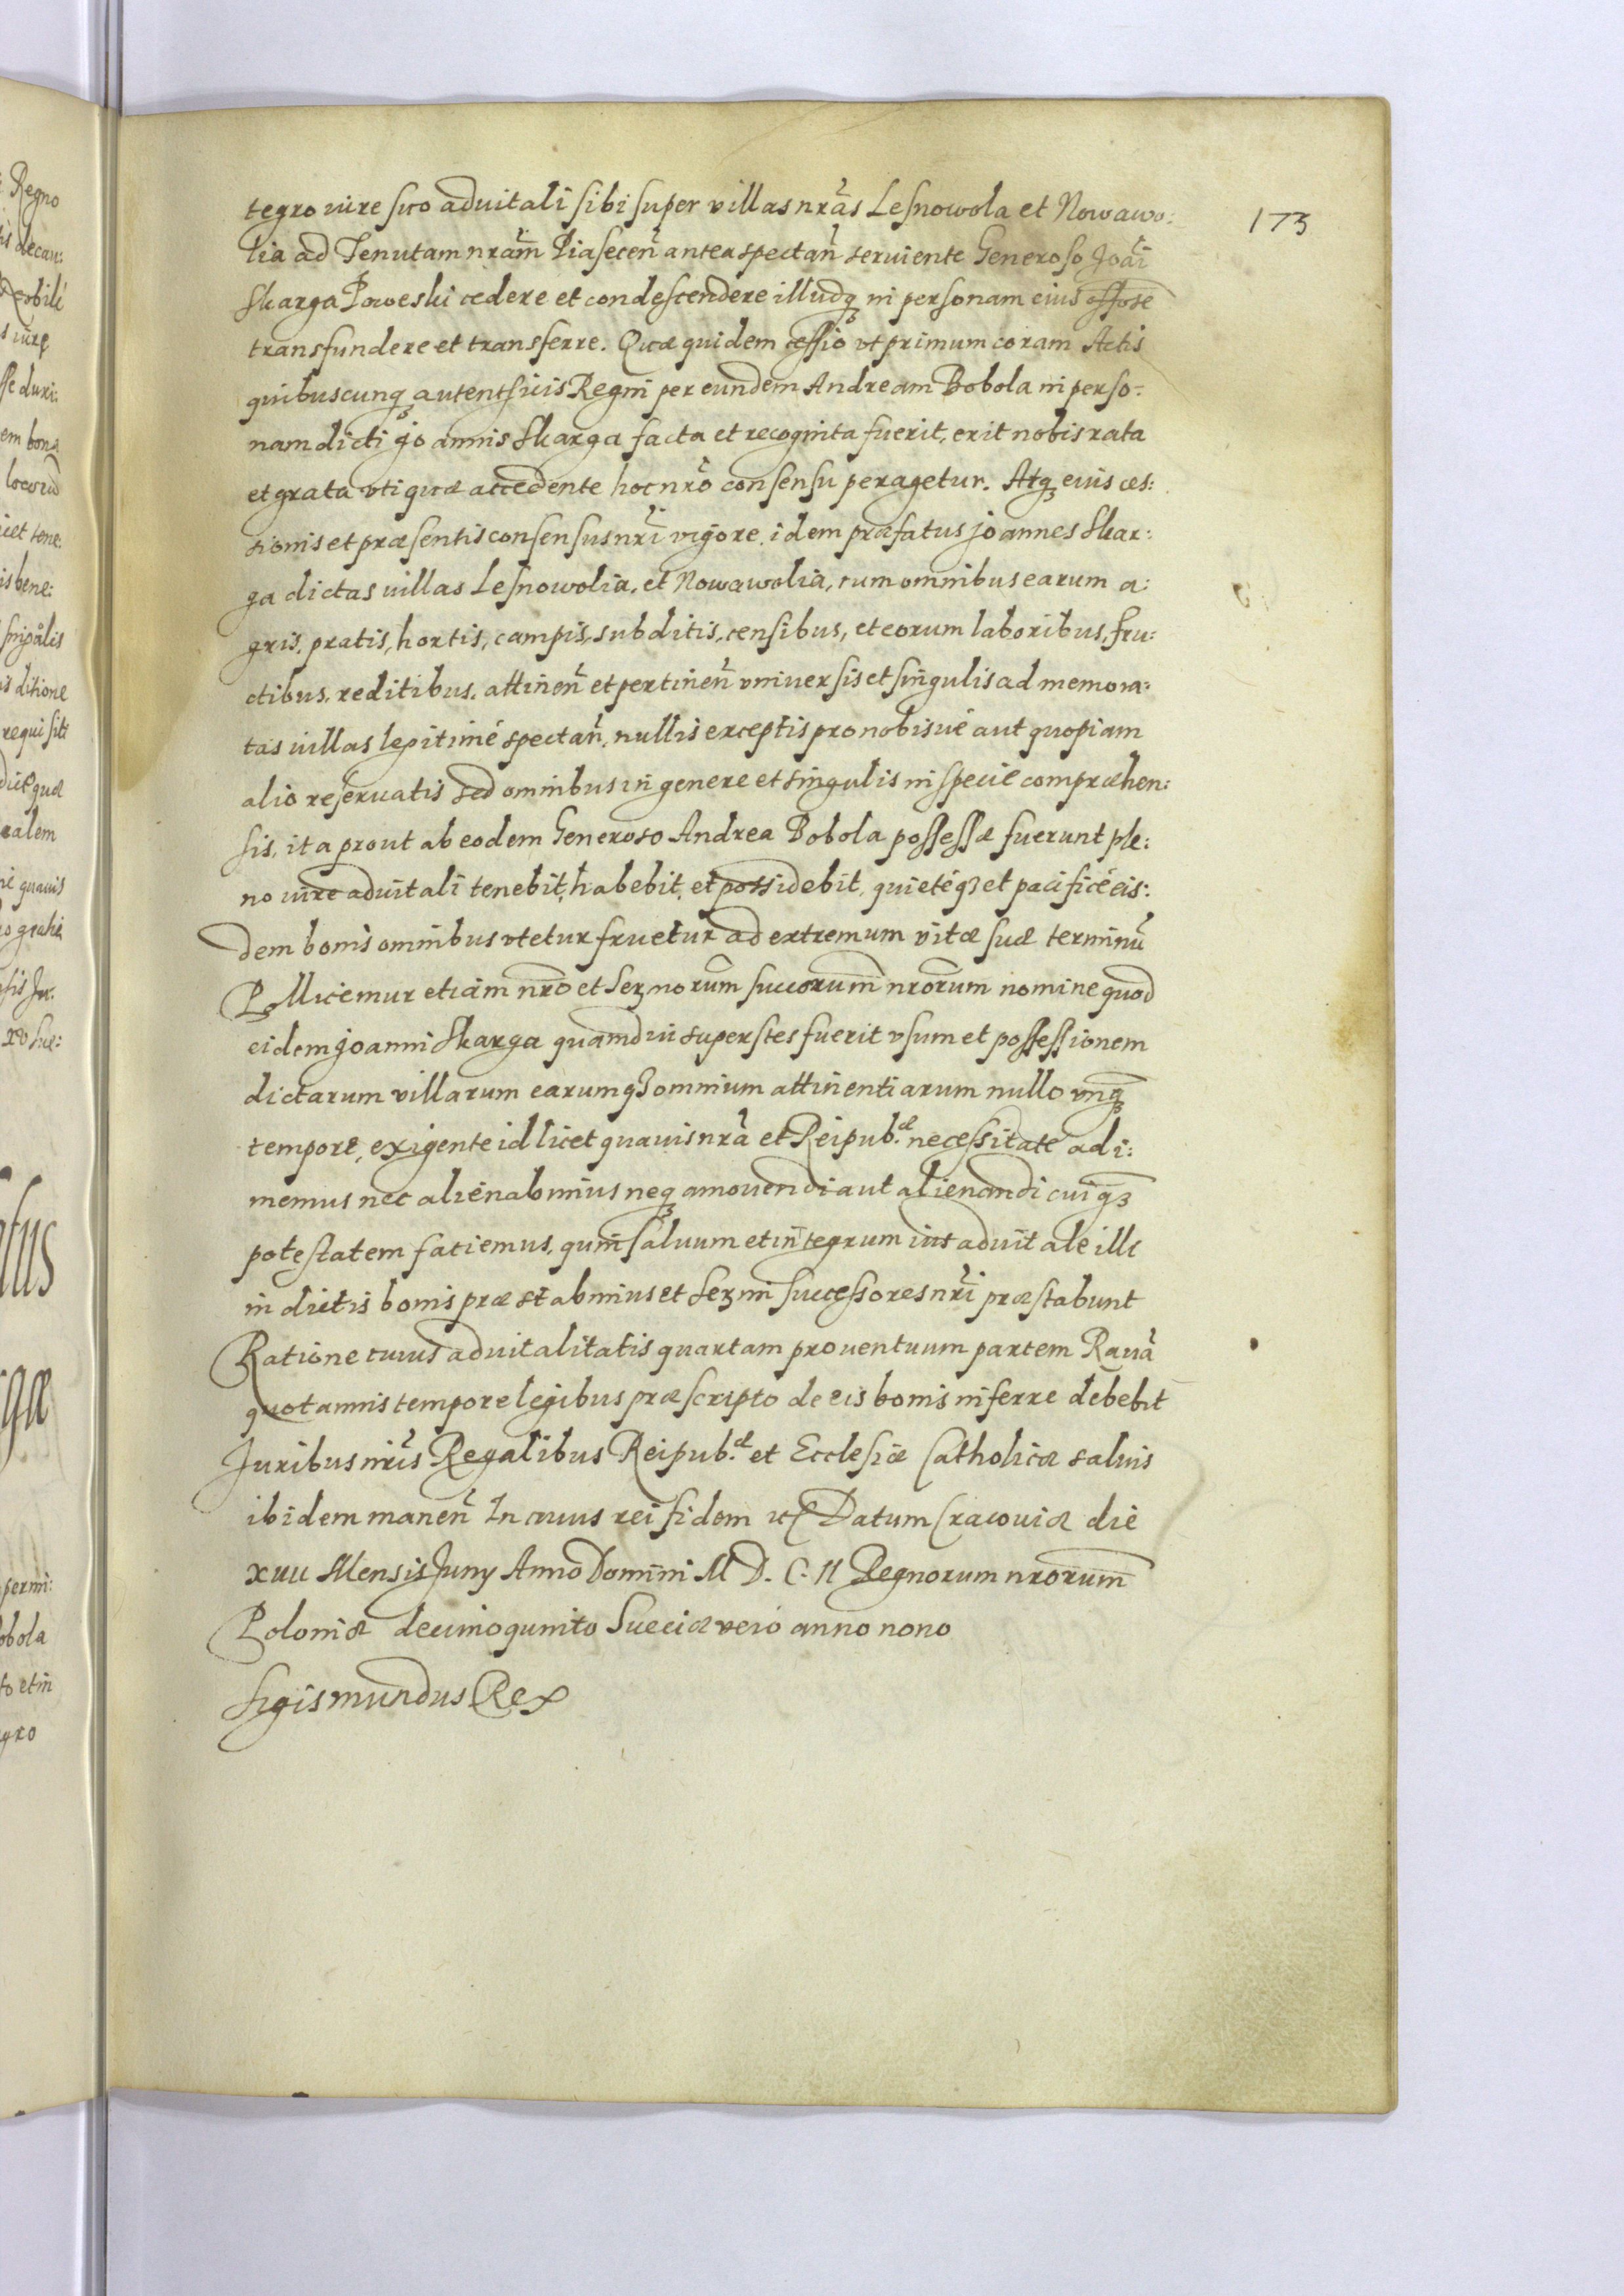 173
tegro iure suo aduitali sibi super villas nrãs Lesnowola et Nowawo:
lia ad Tenutam nram̃ Piasecen̄ antea spectan̄ seruiente Generoso Joãi
Skarga Poweski cedere et condescendere illudq̢ in personam eius
transfundere et transferre. Quæ quidem cessio vt primum coram Actis
quibuscunq̢ autenthicis Regni per eundem Andream Bobola in perso:
nam dicti Joannis Skarga facta et recognita fuerit, erit nobis rata
et grata vti quæ accedente hoc nrõ consensu peragetur. Atq̢ eius ces:
sionis et præsentis consensus nrĩ vigore, idem præfatus Joannes Skar:
ga dictas villas Lesnowolia, et Nowawolia, cum omnibus earum a:
gris, pratis, hortis, campis, subditis, censibus, et eorum laboribus, fru:
ctibus, reditibus, attinen̄ et pertinen̄ vniuersis et singulis ad memora:
tas villas legitimé spectan̄, nullis exceptis pro nobis ué aut quopiam
alio reseruatis sed omnibus in genere et singulis in specie compræhen:
sis, ita prout ab eodem Generoso Andrea Bobola possessæ fuerunt ple:
no iure aduitali tenebit, habebit, et possidebit, quietéq̢ et pacificé eis:
dem bonis omnibus vtetur fruetur ad extremum vitæ suæ terminũ
Pollicemur etiam nrõ et Serenorum̃ succorum̃ nrorum̃ nomine quod
eidem Joanni Skarga quamdiu superstes fuerit vsum et possessionem
dictarum villarum earumq̢ omnium attinentiarum nullo vnq̢
tempore, exigente id licet quauis nrã et Reipub.æ necessitate adi:
memus nec alienabimus neq̢ amouendi aut alienandi cuiq̢
potestatem faciemus, quin saluum et integrum ius aduitale illi
in dictis bonis præstabimus et Serenmi successores nrĩ præstabunt
Ratione cuius aduitalitatis quartam prouentuum partem Rauã
quotannis tempore legibus præscripto de eis bonis inferre debebit
Juribus nrĩs Regalibus Reipub.æ et Ecclesiæ Catholicæ saluis
ibidem manen̄ In cuius rei fidem etc Datum Cracouiæ die
xvii Mensis Juny Anno Domini M D. C. II Regnorum nrorum̃
Poloniæ decimoquinto Sueciæ vero anno nono
Sigismundus Rex